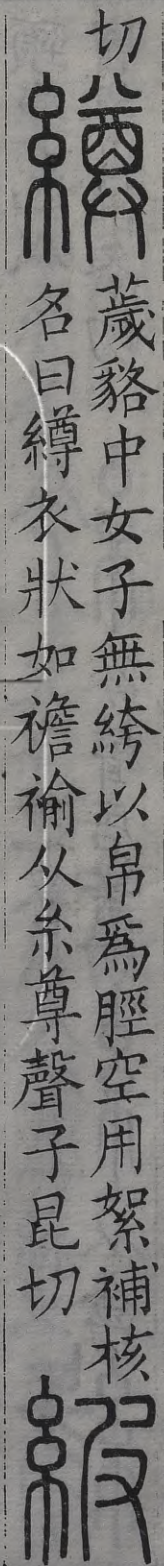 切
繜
薉貉中女子無絝以帛爲脛空用絮補核
名曰繜衣狀如襜褕从糸尊聲子昆切
紴